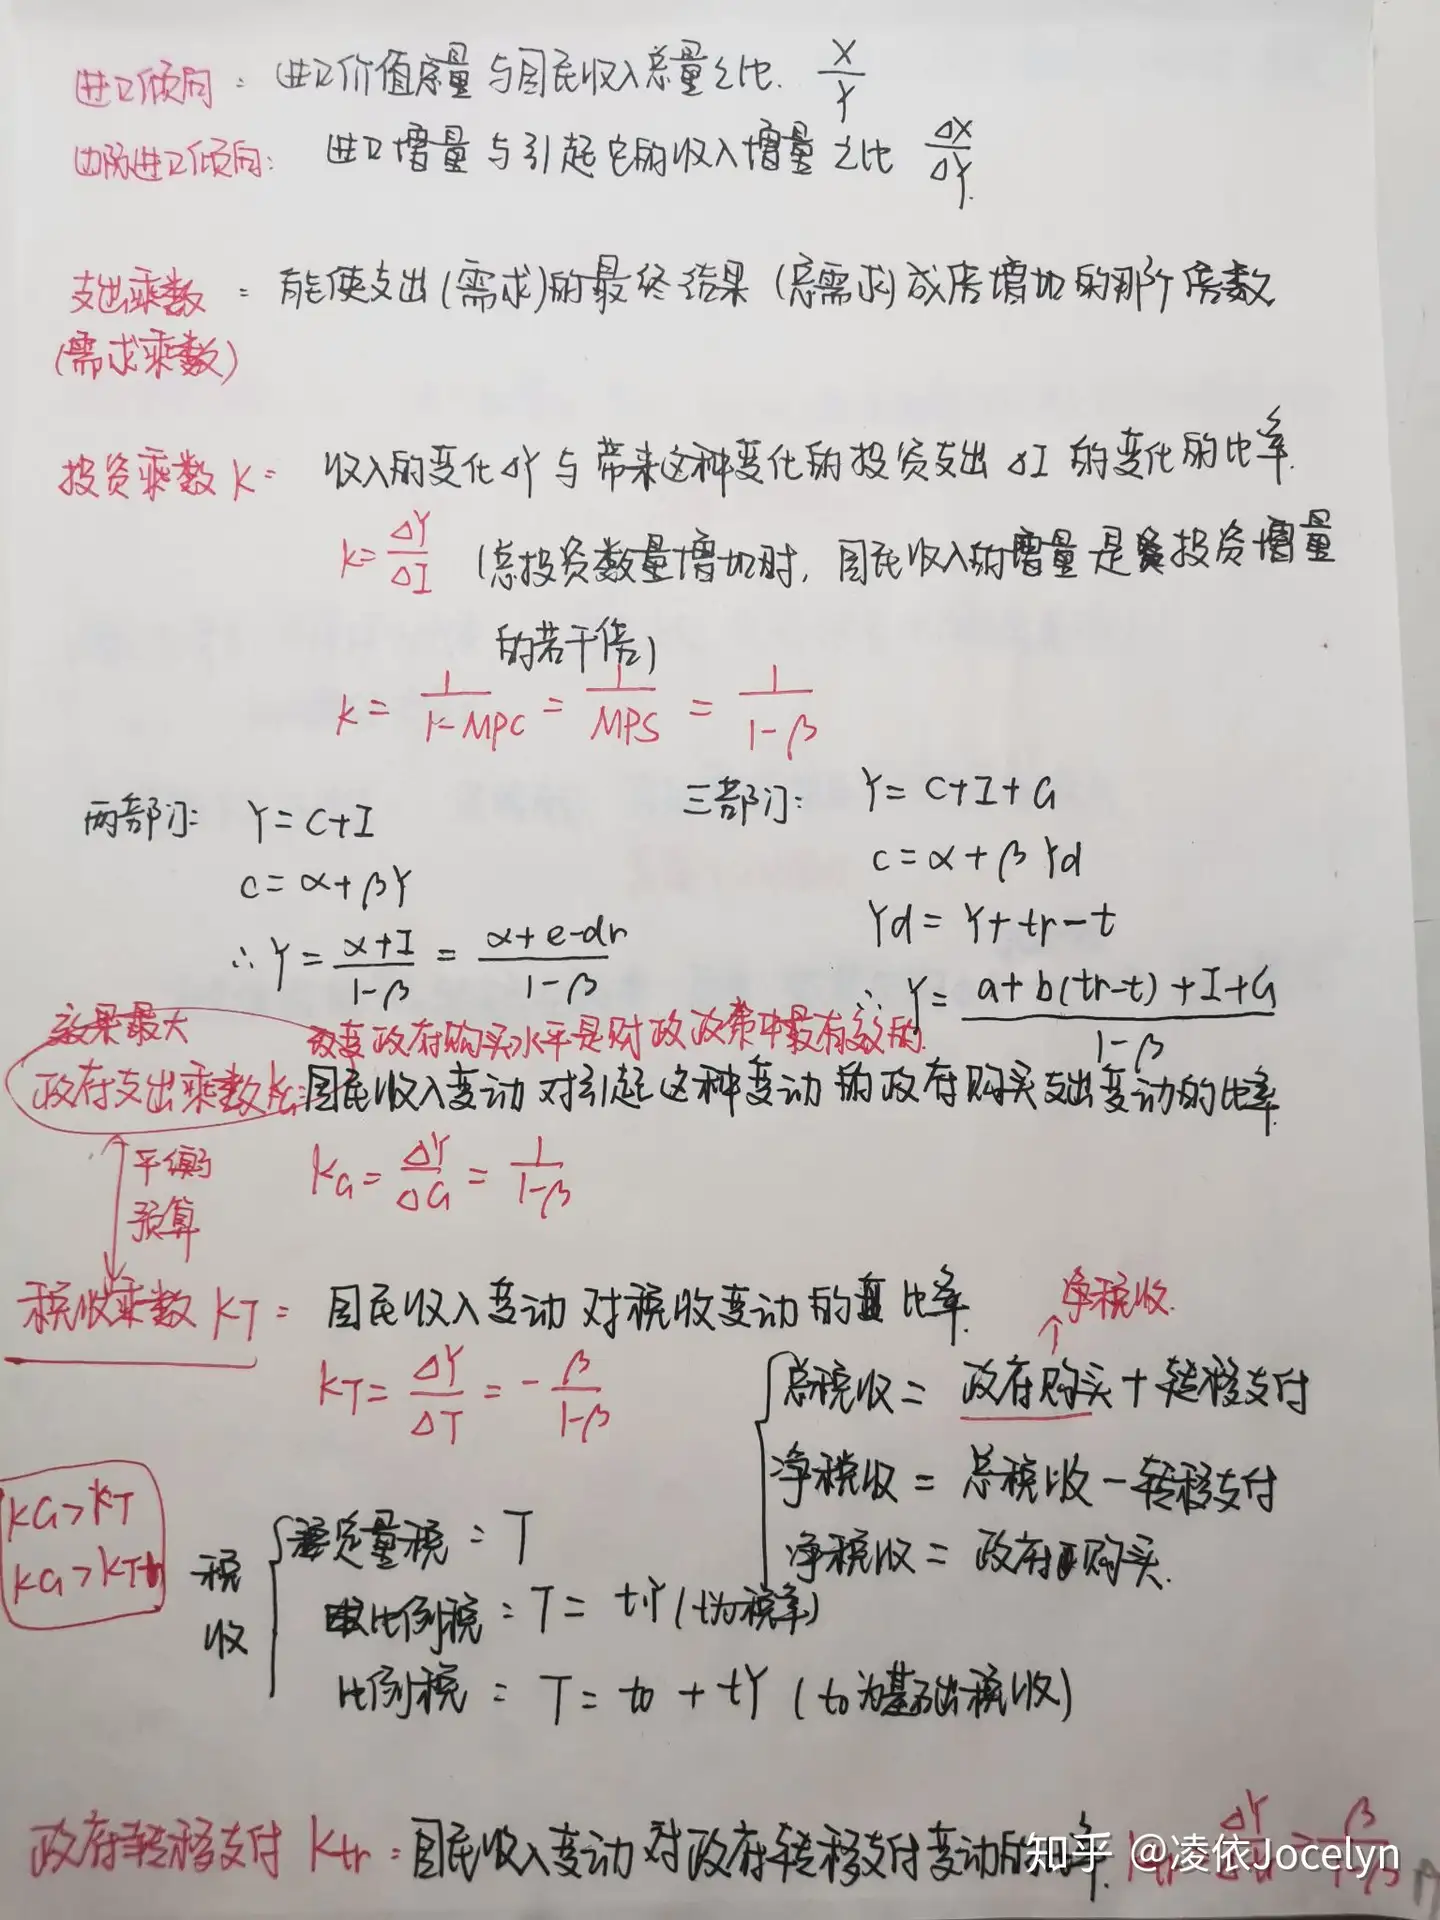 进口倾向: 进口价值总量与国民收入总量之比. X/Y
边际进口倾向: 进口增量与引起它的收入增量之比 ΔX/ΔY.
支出乘数 = 能使支出(需求)的最终结果(总需求)成倍增加的那个倍数
(需求乘数)
投资乘数K= 收入的变化ΔY与带来这种变化的投资支出ΔI的变化的比率.
k=ΔY/ΔI (总投资数量增加时, 国民收入的增量是投资增量
的若干倍)
k = 1/(1-MPC) = 1/MPS = 1/(1-β)
两部门: Y=C+I
三部门: Y=C+I+G
C=α+βY
C=α+βYd
Yd=Y+tr-t
∴Y=(α+I)/(1-β)=(α+e-dr)/(1-β)
∴Y=(a+b(tr-t)+I+G)/(1-β)
效果最大
改变政府购买水平是财政政策中最有效的.
政府支出乘数KG:国民收入变动对引起这种变动的政府购买支出变动的比率.
平衡
预算
KG=ΔY/ΔG=1/(1-β)
税收乘数KT= 国民收入变动对税收变动的比率.
净税收.
KT=ΔY/ΔT=-β/(1-β)
总税收=政府购买+转移支付
净税收=总税收-转移支付
净税收=政府购买.
KG>KT
KG>KTr
税收
定量税:T
比例税:T=tY(t为税率)
比例税:T=t0+tY(t0为基础税收)
政府转移支付Ktr:国民收入变动对政府转移支付变动的 率.
知乎 @凌依Jocelyn